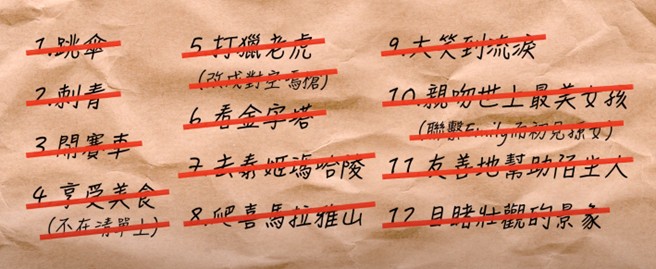 1.跳傘
2.刺青
3.開賽車
4.享受美食
(不在清單上)
5.打獵老虎
(改成對空鳴槍)
6.看金字塔
7.去泰姬瑪哈陵
8.爬喜馬拉雅山
9.大笑到流淚
10.親吻世上最美女孩
(聯繫Emily而初見孫女)
11.友善地幫助陌生人
12.目睹壯觀的景象